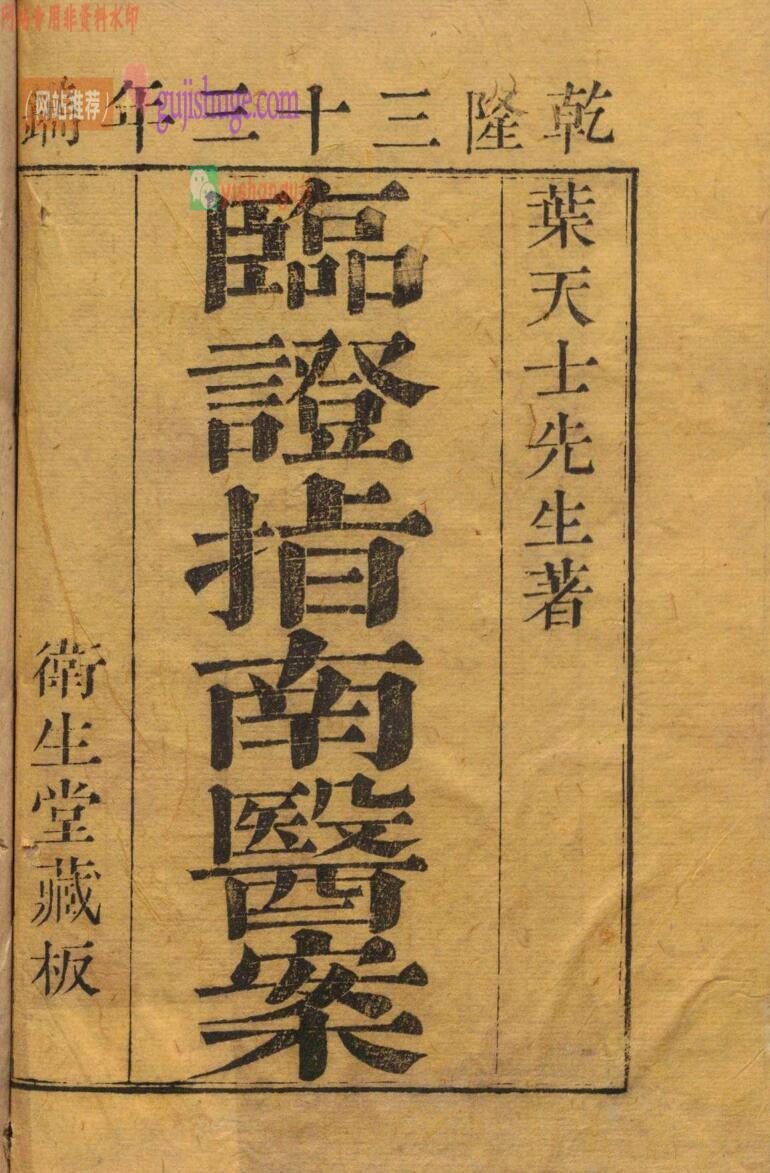 乾隆三十三年鐫
葉天士先生著
臨證指南醫案
衛生堂藏板
网站专用非资料水印
(网站推荐)
gujishuge.com